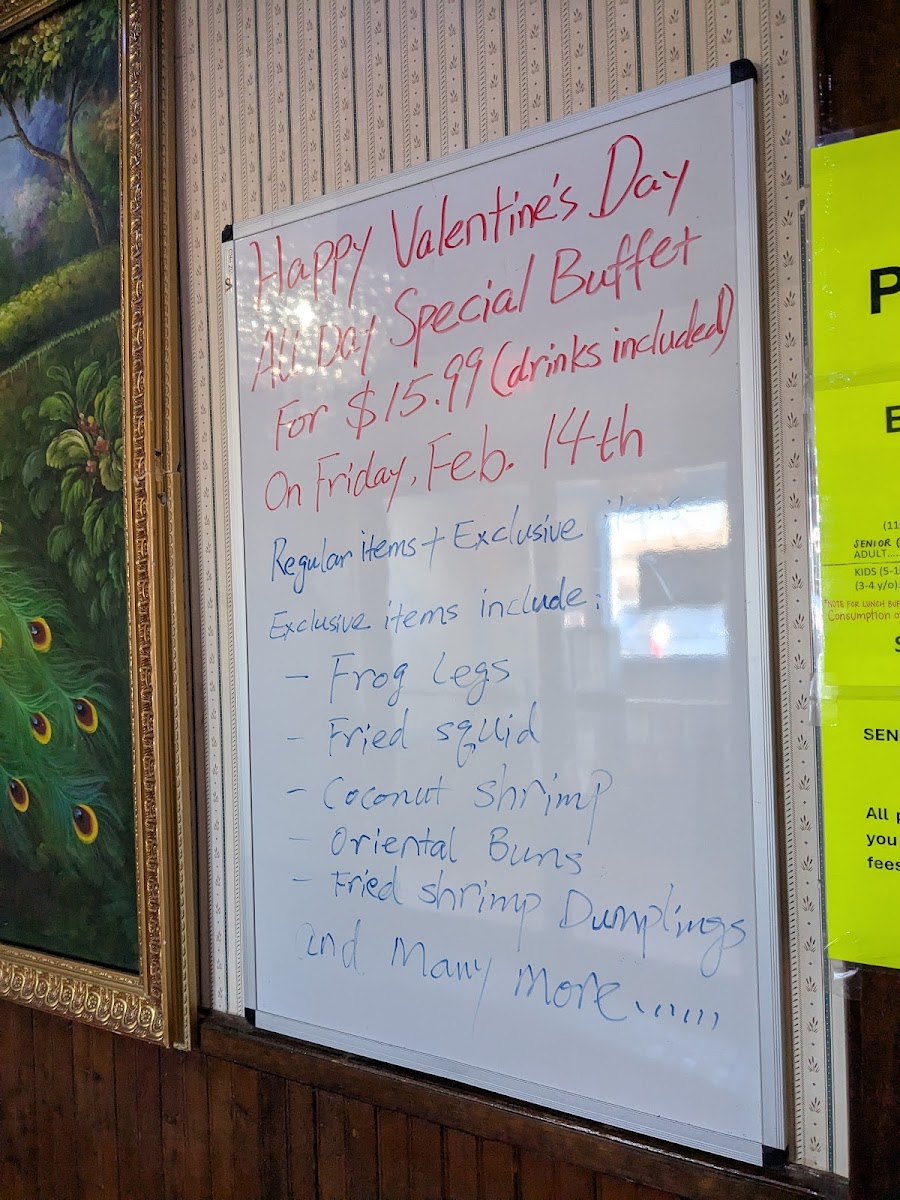 Happy Valentine's Day
All Day Special Buffet
For $15.99 (drinks included)
On Friday, Feb. 14th
Regular items + Exclusive items
Exclusive items include:
- Frog Legs
- Fried squid
- Coconut shrimp
- Oriental Buns
- Fried shrimp Dumplings
and Many More......
P
E
(11
SENIOR (
ADULT.....
KIDS (5-1
(3-4 y/o).
*NOTE FOR LUNCH BUF
Consumption o
S
SEN
All p
you
fees